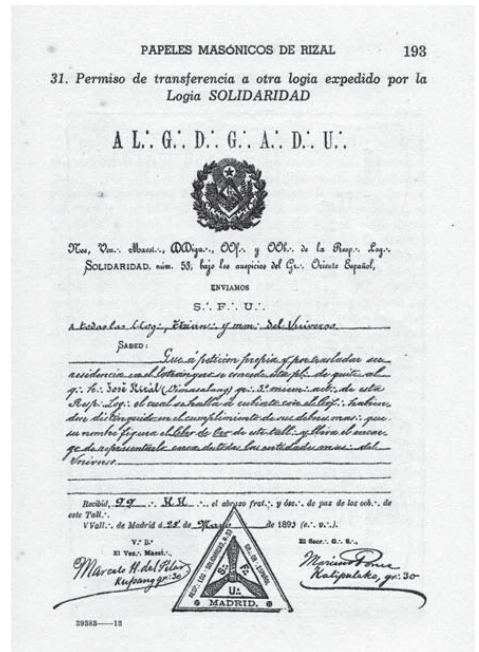 PAPELES MASÓNICOS DE RIZAL 193
31. Permiso de transferencia a otra logia expedido por la
Logia SOLIDARIDAD
A L∴ G∴ D∴ G∴ A∴ D∴ U∴
Nos, Ven∴ Maest∴, DDig∴, OOf∴ y OOb∴ de la Resp∴ Log∴
SOLIDARIDAD, núm. 53, bajo los auspicios del Gr∴ Oriente Español,
ENVIAMOS
S∴ F∴ U∴
A todas las LLog∴, y mm∴ del Universo
SABED:
Que á petición propia y por trasladar su
residencia en el extrangero se concede esta pl∴ de quite al
q∴ h∴ José Rizal (Dimasalang) gr∴ 3º miem∴ act∴ de esta
Resp∴ Log∴ el cual se halla á cubierto con el habien
dose distinguido en el cumplimiento de sus deberes mas∴ que
su nombre figura el libro de Oro de este tall∴ y lleva el encar
go de representarle cerca de todas las entidades mas∴ del
Universo
Recibid, el abrazo frat∴ y ósc∴ de paz de los oob∴ de
este Tall∴
VVall∴ de Madrid á de de 189 (e∴ v∴).
V∴ B∴
El Ven∴ Maest∴,
Marcelo H. del Pilar
Kupang gr∴ 30
El Secr∴ G∴ S∴,
Mariano Ponce
Kalipulako, gr∴ 30
RESP∴ LOG∴ SOLIDARIDAD, N. 53
GR∴ OR∴ ESPAÑOL
S∴ F∴
U∴
MADRID.
39383——13